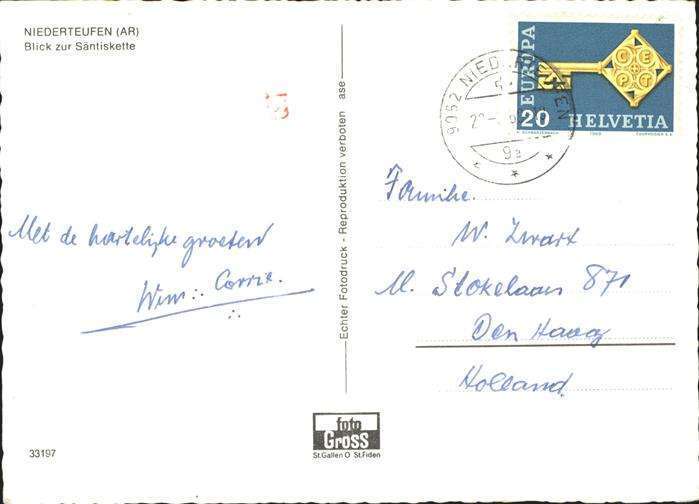 NIEDERTEUFEN (AR)
Blick zur Säntiskette
Met de hartelijke groeten
Wim : Corrie.
33197
Echter Fotodruck - Reproduktion verboten ase
foto
Gross
St.Gallen O St.Fiden
EUROPA
CEPT
20 HELVETIA
1968
9052 NIED
9a
Familie.
W. Zwart
M. Stokelaan 871
Den Haag
Holland.